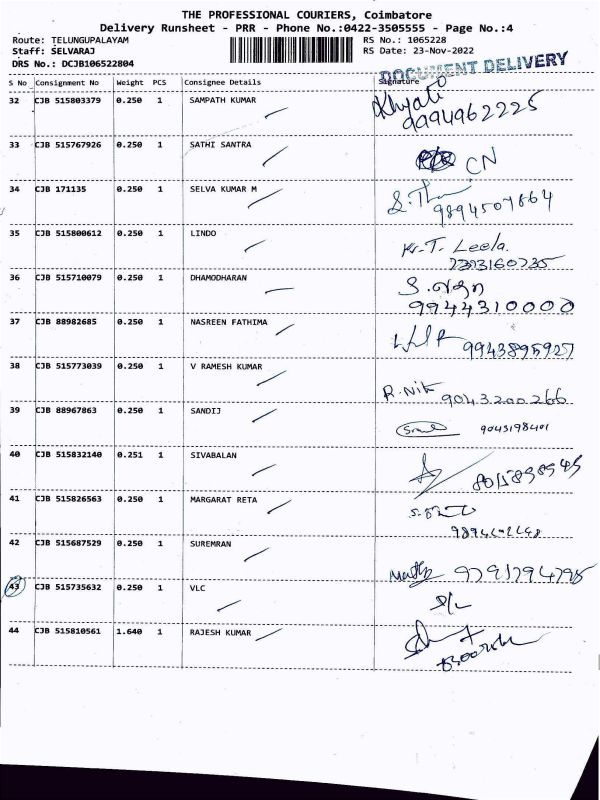 THE PROFESSIONAL COURIERS, Coimbatore
Delivery Runsheet - PRR - Phone No.:0422-3505555 - Page No.:4
Route: TELUNGUPALAYAM RS No.: 1065228
Staff: SELVARAJ RS Date: 23-Nov-2022
DRS No.: DCJB106522804
DOCUMENT DELIVERY
S No Consignment No Weight PCS Consignee Details Signature
32 CJB 515803379 0.250 1 SAMPATH KUMAR Khyati
9994962225
33 CJB 515767926 0.250 1 SATHI SANTRA CN
34 CJB 171135 0.250 1 SELVA KUMAR M
9894507664
35 CJB 515800612 0.250 1 LINDO K.T. Leela.
7373160735
36 CJB 515710079 0.250 1 DHAMODHARAN
9944310000
37 CJB 88982685 0.250 1 NASREEN FATHIMA
9943895927
38 CJB 515773039 0.250 1 V RAMESH KUMAR R.Nik
9043200266
39 CJB 88967863 0.250 1 SANDIJ 9043198401
40 CJB 515832140 0.251 1 SIVABALAN
41 CJB 515826563 0.250 1 MARGARAT RETA
42 CJB 515687529 0.250 1 SUREMRAN
9791794795
43 CJB 515735632 0.250 1 VLC
44 CJB 515810561 1.640 1 RAJESH KUMAR